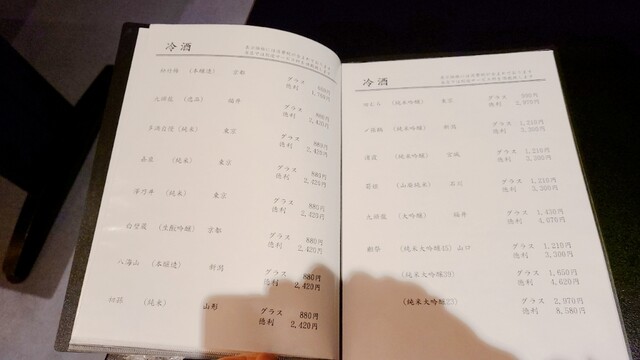 冷酒
(本醸造) 京都 グラス
徳利 1,760円
九頭龍 (逸品) 福井 グラス 880円
徳利 2,420円
(純米) 東京 グラス 880円
徳利 2,420円
(純米) 東京 グラス 880円
徳利 2,420円
澤乃井 (純米) 東京 グラス 880円
徳利 2,420円
白甕蔵 (生酛吟醸) 京都 グラス 880円
徳利 2,420円
八海山 (本醸造) 新潟 グラス 880円
徳利 2,420円
(純米) 山形 グラス 880円
徳利 2,420円
冷酒
(純米吟醸) 東京 グラス
徳利 2,970円
〆張鶴 (純米吟醸) 新潟 グラス 1,210円
徳利 3,300円
浦霞 (純米吟醸) 宮城 グラス 1,210円
徳利 3,300円
菊姫 (山廃純米) 石川 グラス 1,210円
徳利 3,300円
九頭龍 (大吟醸) 福井 グラス 1,430円
徳利 4,070円
獺祭 (純米大吟醸45) 山口 グラス 1,210円
徳利 3,300円
(純米大吟醸39) グラス 1,650円
徳利 4,620円
(純米大吟醸23) グラス 2,970円
徳利 8,580円